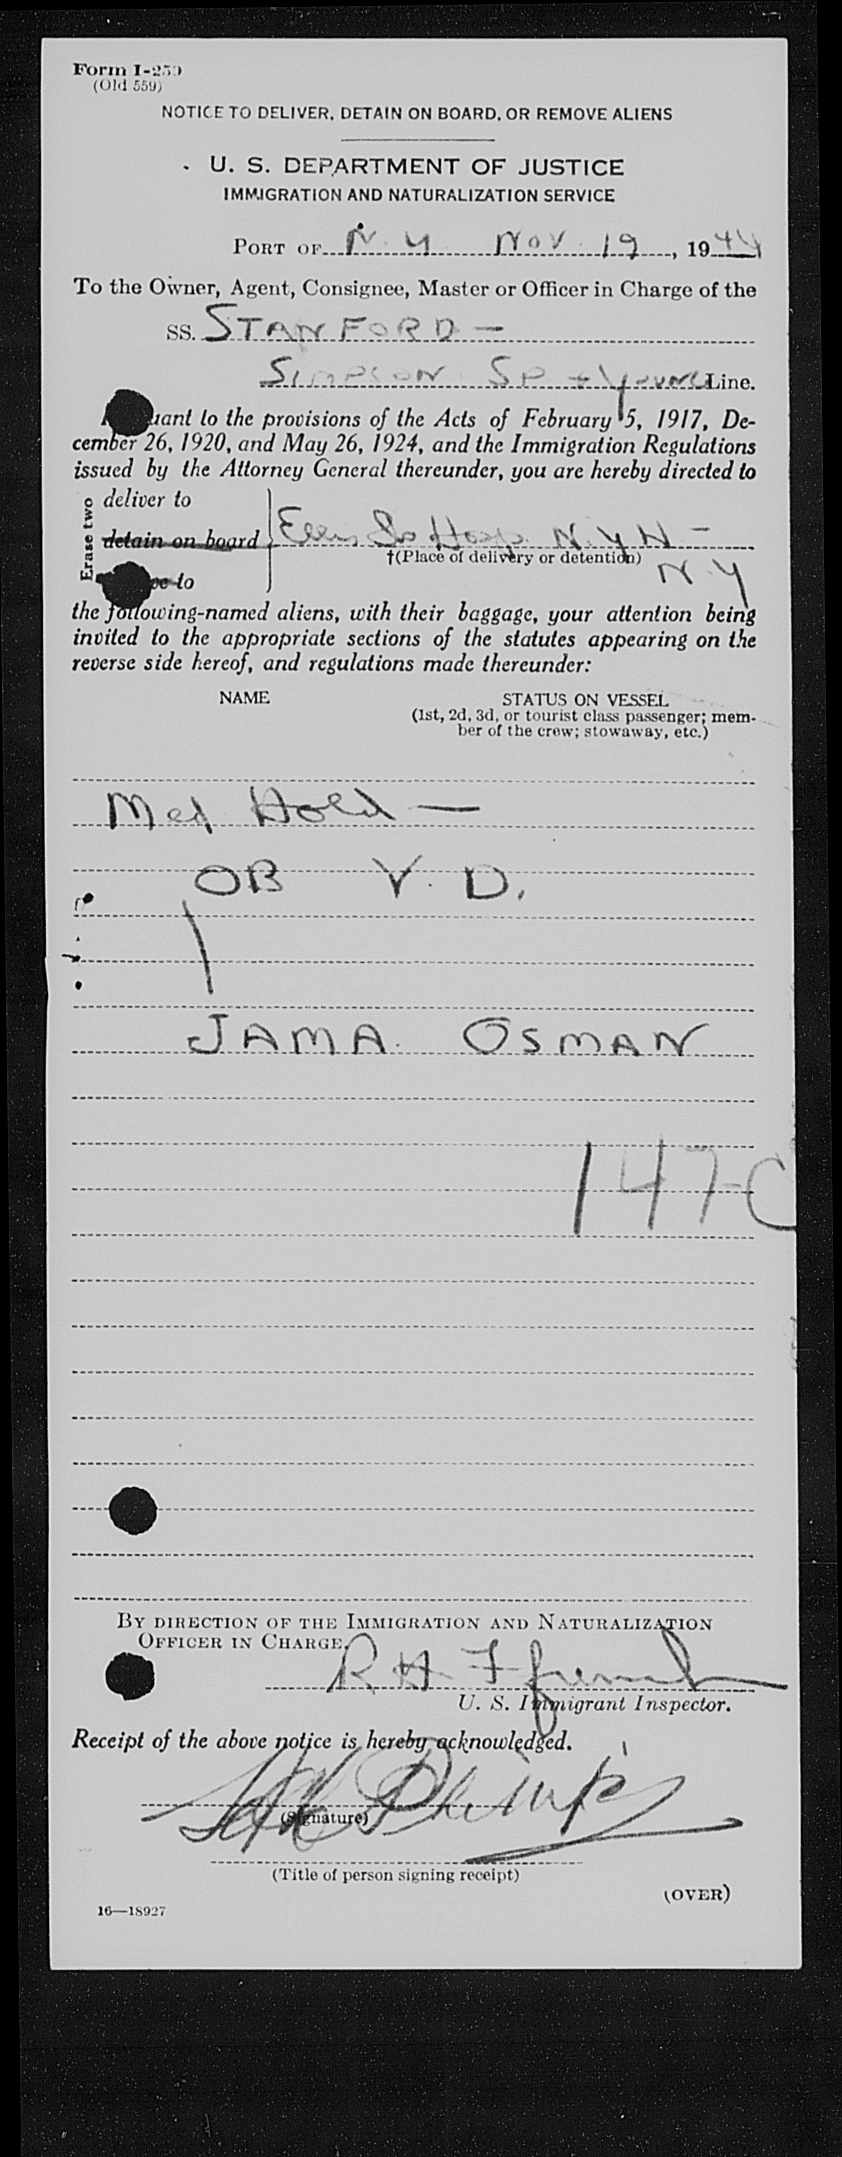 Form I-259
(Old 559)
NOTICE TO DELIVER, DETAIN ON BOARD, OR REMOVE ALIENS
U. S. DEPARTMENT OF JUSTICE
IMMIGRATION AND NATURALIZATION SERVICE
PORT OF N. Y Nov 19, 1944
To the Owner, Agent, Consignee, Master or Officer in Charge of the
SS. STANFORD —
SIMPSON SP + Young Line.
uant to the provisions of the Acts of February 5, 1917, De-
cember 26, 1920, and May 26, 1924, and the Immigration Regulations
issued by the Attorney General thereunder, you are hereby directed to
Erase two
deliver to
detain on board
Ellis Is Hosp N.Y H —
†(Place of delivery or detention)
N. Y
to
the following-named aliens, with their baggage, your attention being
invited to the appropriate sections of the statutes appearing on the
reverse side hereof, and regulations made thereunder:
NAME STATUS ON VESSEL
(1st, 2d, 3d, or tourist class passenger; mem-
ber of the crew; stowaway, etc.)
Med Hold —
OB V. D.
JAMA OSMAN
147-C
BY DIRECTION OF THE IMMIGRATION AND NATURALIZATION
OFFICER IN CHARGE.
R H
U. S. Immigrant Inspector.
Receipt of the above notice is hereby acknowledged.
(Signature)
(Title of person signing receipt)
(OVER)
16—18927